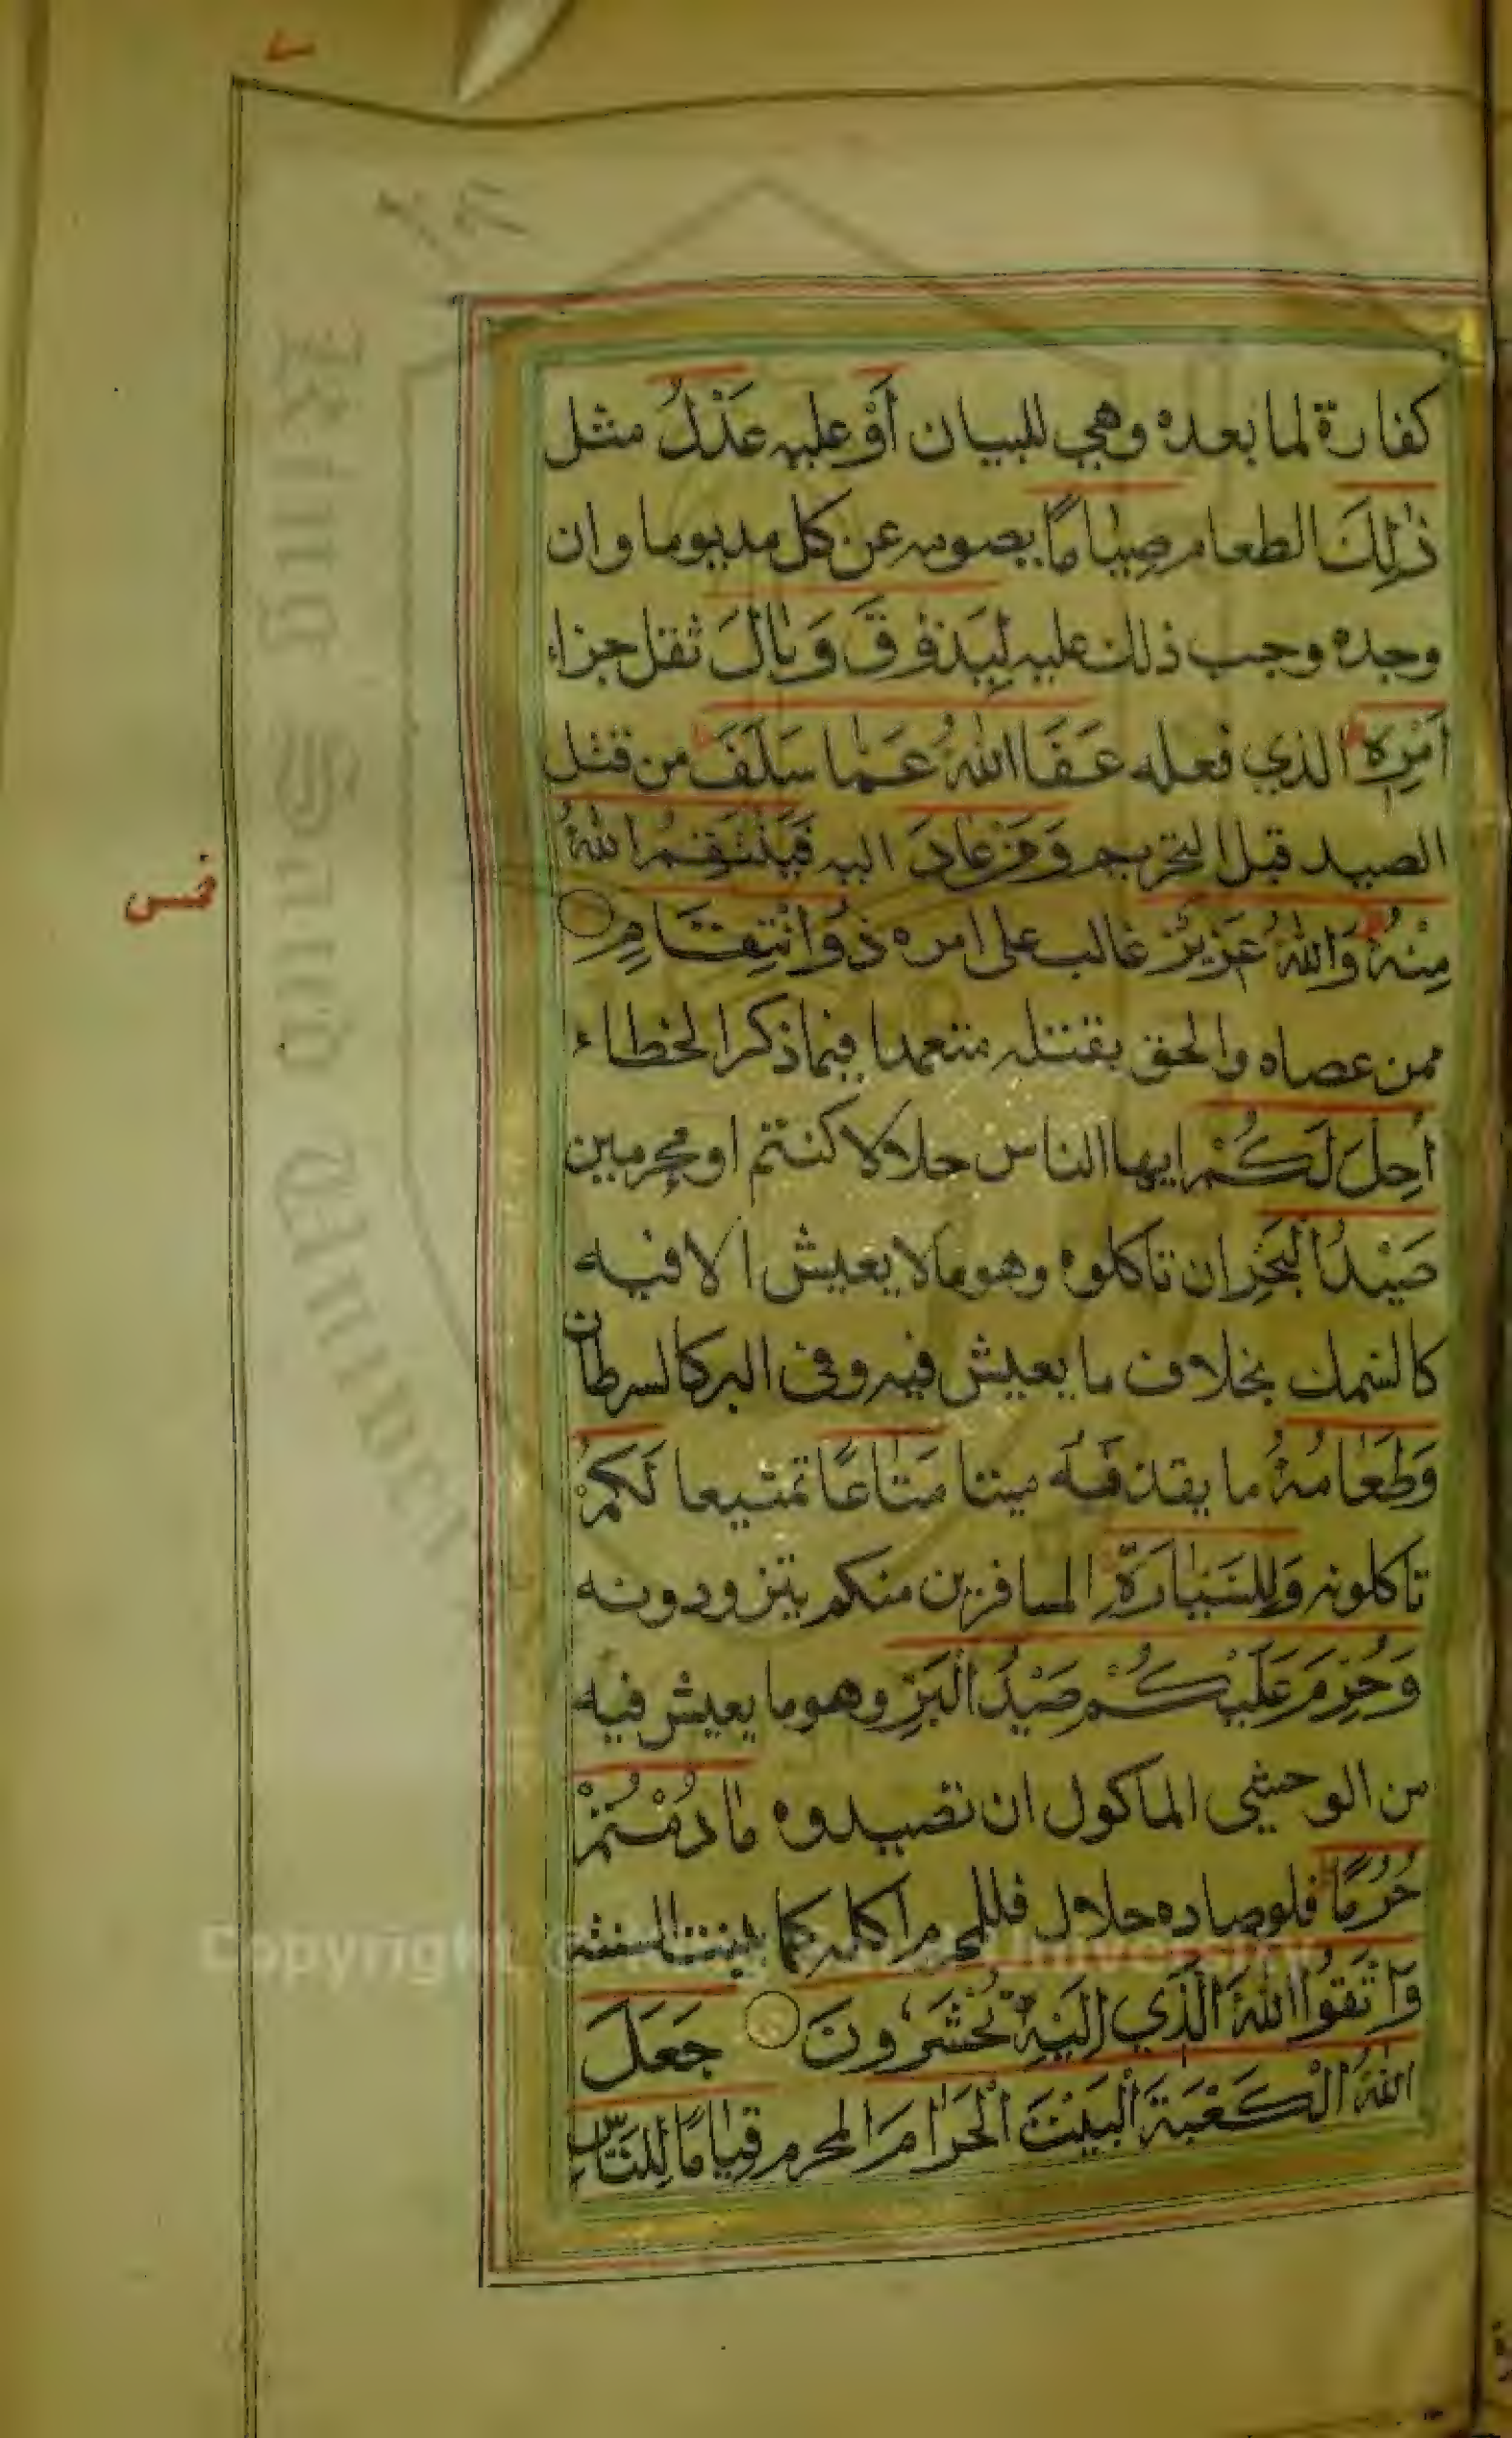 كفارة لما بعده وهي للبيان أَوْ عليه عَدْلُ مثل
ذٰلِكَ الطعام صِيَامًا يصومه عن كل مد يوما وان
وجده وجب ذلك عليه لِيَذُوقَ وَبَالَ ثقل جزاء
اَمْرِهِ الذي فعله عَفَا اللّٰهُ عَمَّا سَلَفَ من قتل
الصيد قبل التحريم وَمَنْ عَادَ اليه فَيَنْتَقِمُ اللّٰهُ
مِنْهُ وَاللّٰهُ عَزِيزٌ غالب على امره ذُو انْتِقَامٍ
ممن عصاه والحق بقتله متعمدا فيما ذكر الخطاء
اُحِلَّ لَكُمْ ايها الناس حلالا كنتم او محرمين
صَيْدُ الْبَحْرِ ان تاكلوه وهو مالا يعيش الا فيه
كالسمك بخلاف ما يعيش فيه وفي البر كالسرطان
وَطَعَامُهُ ما يقذفه ميتا مَتَاعًا تمتيعا لَكُمْ
تاكلونه وَلِلسَّيَّارَةِ المسافرين منكم يتزودونه
وَحُرِّمَ عَلَيْكُمْ صَيْدُ الْبَرِّ وهو ما يعيش فيه
من الوحشي الماكول ان تصيدوه مَا دُمْتُمْ
حُرُمًا فلو صاده حلال فللمحرم اكله كما بينته السنة
وَاتَّقُوا اللّٰهَ الَّذِي اِلَيْهِ تُحْشَرُونَ جَعَلَ
اللّٰهُ الْكَعْبَةَ الْبَيْتَ الْحَرَامَ المحرم قِيَامًا لِلنَّاسِ
Copyright © King Saud University
King Saud University